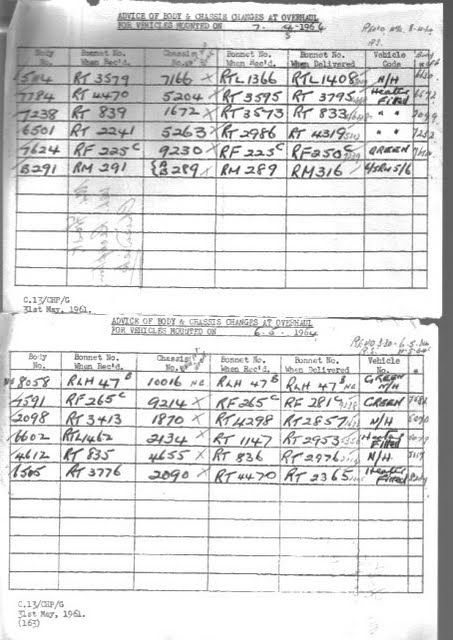 ADVICE OF BODY & CHASSIS CHANGES AT OVERHAUL
FOR VEHICLES MOUNTED ON 7. 4. 1964
5
Body No. Bonnet No. When Rec'd. Chassis No. Bonnet No. When Rec'd. Bonnet No. When Delivered Vehicle Code
RT 3579 7166 X RTL 1366 RTL 1408 N/H
7784 RT 4470 5204 X RT 3595 RT 3795 Heater Fitted
7238 RT 839 1672 X RT 3573 RT 833 " "
6501 RT 2241 5263 X RT 2986 RT 4319 " "
RF 225 C 9230 RF 225 C RF 250 C GREEN
B291 RM 291 A B 289 X RM 289 RM 316
C.13/CHP/G
31st May, 1961.
ADVICE OF BODY & CHASSIS CHANGES AT OVERHAUL
FOR VEHICLES MOUNTED ON 6-5-1964
Body No. Bonnet No. When Rec'd. Chassis No. Bonnet No. When Rec'd. Bonnet No. When Delivered Vehicle No.
8058 RLH 47 B 10016 NC RLH 47 B RLH 47 B GREEN N/H
RF 265 C 9214 X RF 265 C RF 281 GREEN
2098 RT 3413 1870 X RT 4298 RT 2857 N/H
6602 RTL 1462 2134 X RT 1147 RT 2953 Heater Fitted
4612 RT 835 4655 X RT 836 RT 2976 N/H
RT 3776 2090 X RT 4470 RT 2365 Heater Fitted
C.13/CHP/G
31st May, 1961.
(163)